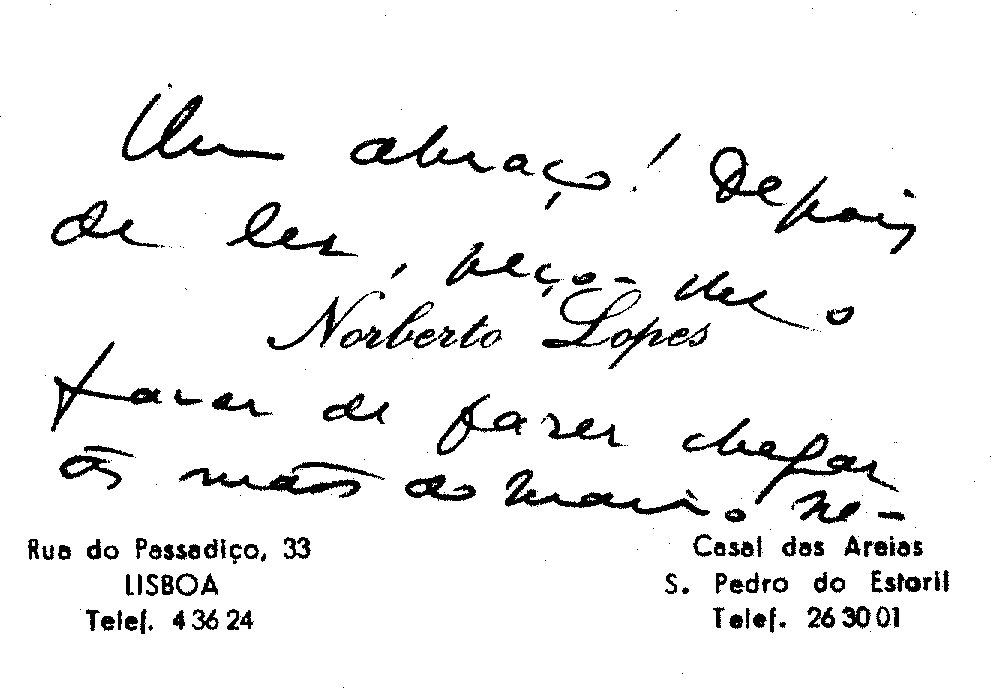 Um abraço! Depois
de ler, peço-lhe o
Norberto Lopes
favor de fazer chegar
às mãos do Mário Ne-
Rua do Passadiço, 33
LISBOA
Telef. 4 36 24
Casal das Areias
S. Pedro do Estoril
Telef. 26 30 01